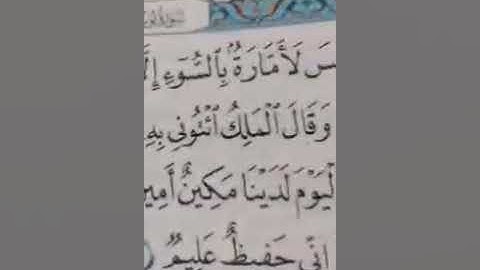 سَ لَأَمَّارَةٌۢ بِٱلسُّوٓءِ إِلَّا
وَقَالَ ٱلْمَلِكُ ٱئْتُونِى بِهِ
لْيَوْمَ لَدَيْنَا مَكِينٌ أَمِين
إِنِّى حَفِيظٌ عَلِيمٌ